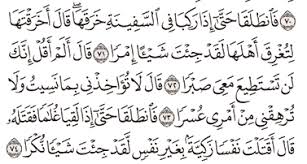 ٧٠ فَٱنطَلَقَا حَتَّىٰٓ إِذَا رَكِبَا فِى ٱلسَّفِينَةِ خَرَقَهَا ۖ قَالَ أَخَرَقْتَهَا
لِتُغْرِقَ أَهْلَهَا لَقَدْ جِئْتَ شَيْـًٔا إِمْرًا ٧١ قَالَ أَلَمْ أَقُلْ إِنَّكَ
لَن تَسْتَطِيعَ مَعِىَ صَبْرًا ٧٢ قَالَ لَا تُؤَاخِذْنِى بِمَا نَسِيتُ وَلَا
تُرْهِقْنِى مِنْ أَمْرِى عُسْرًا ٧٣ فَٱنطَلَقَا حَتَّىٰٓ إِذَا لَقِيَا غُلَـٰمًا فَقَتَلَهُۥ
قَالَ أَقَتَلْتَ نَفْسًا زَكِيَّةًۢ بِغَيْرِ نَفْسٍ لَّقَدْ جِئْتَ شَيْـًٔا نُّكْرًا ٧٤